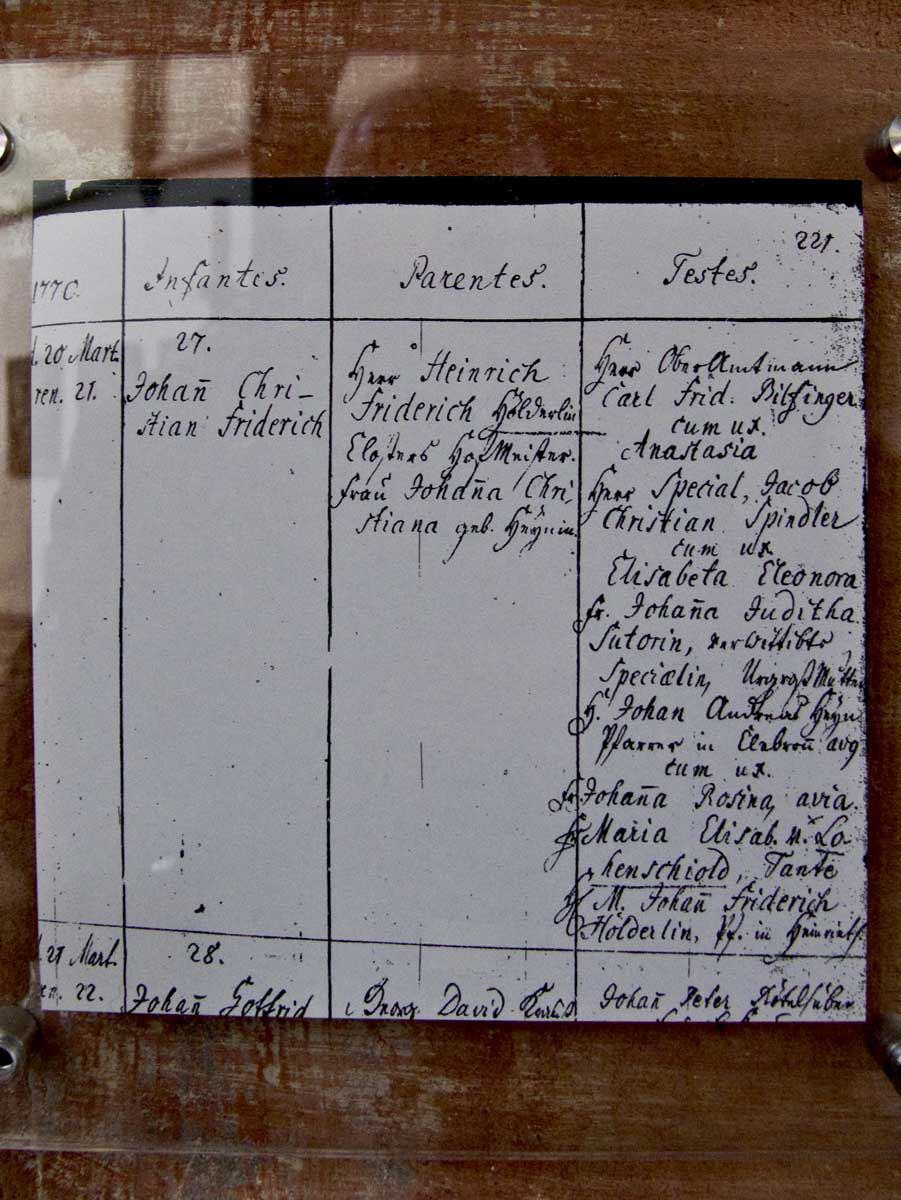 221.
1770. Infantes. Parentes. Testes.
d. 20 Mart.
ren. 21.
27.
Johañ Chri-
stian Friderich
Herr Heinrich
Friderich Hölderlin
Closters Hof Meister.
Frau Johaña Chri
stiana geb. Heynin.
Herr OberAmtmann
Carl Frid: Bilfinger
cum ux.
Anastasia
Herr Special, Jacob
Christian Spindler
cum ux
Elisabeta Eleonora
Fr. Johaña Juditha
Sutorin, verwittibte
Specialin, UrgroßMutter
H. Johan Andreas Heyn
Pfarrer in Clebroñ avg
cum ux.
Fr. Johaña Rosina, avia.
Fr. Maria Elisab. v. Lo
henschiold, Tante
H. M. Johañ Friderich
Hölderlin, Pf. in
d. 21 Mart.
ren. 22.
28.
Johañ Gottfrid
Georg David
Johañ Peter